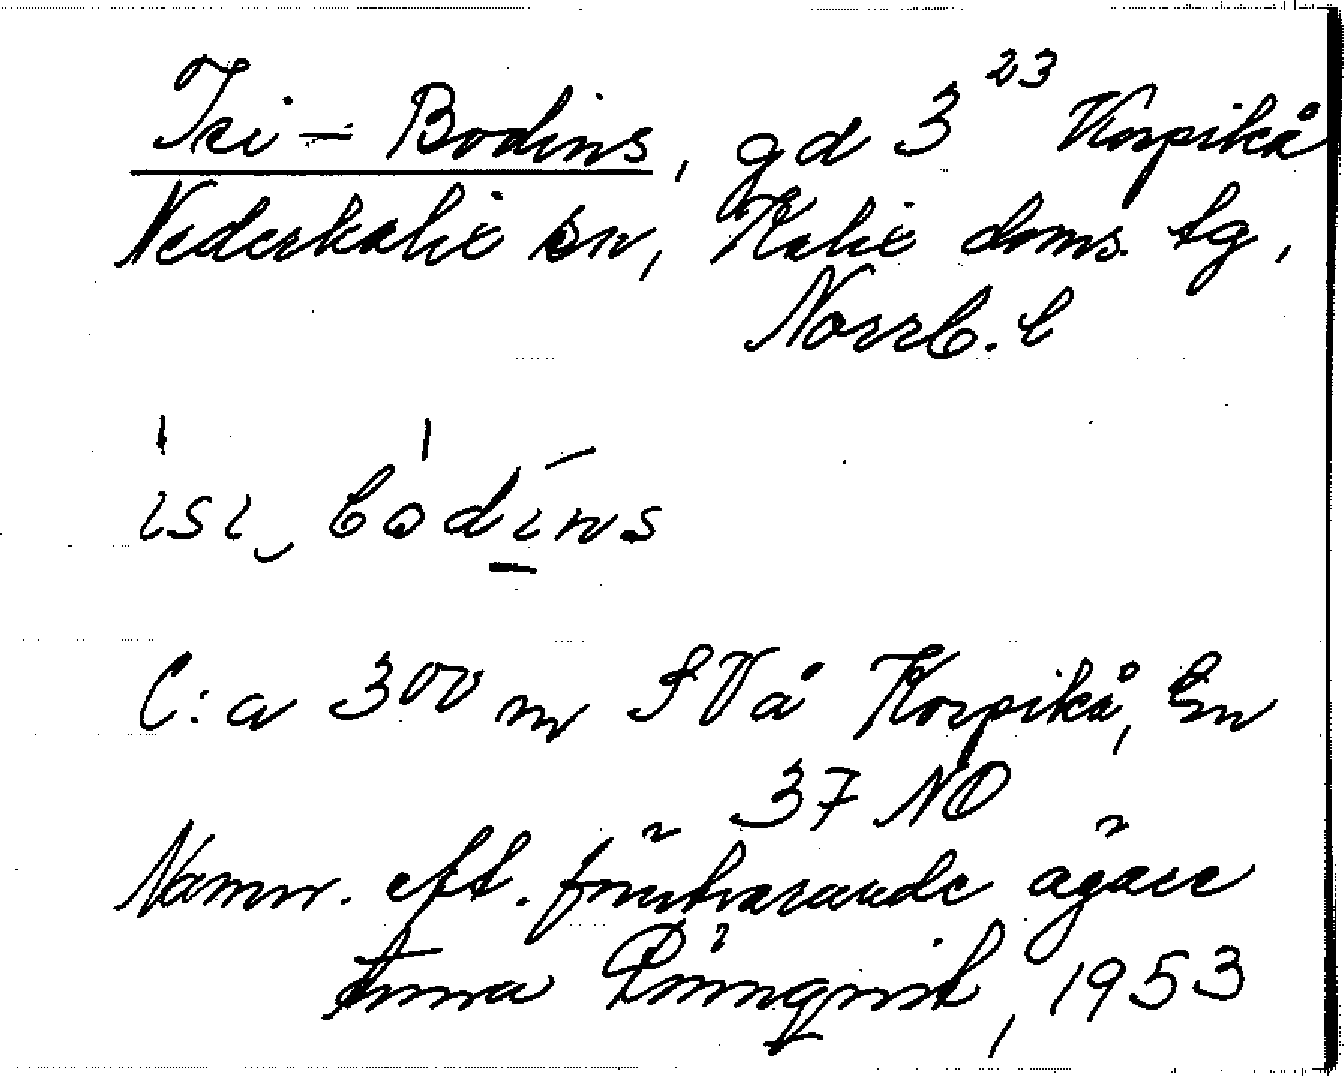 Isi-Bodins, gd 3²³ Korpikå
Nederkalix sn, Kalix doms. tg,
Norrb. l
isi‿bodins
C:a 300 m SV å Korpikå, En
37 NO
Namn. eft. förutvarande ägare
Anna Rönnqvist, 1953